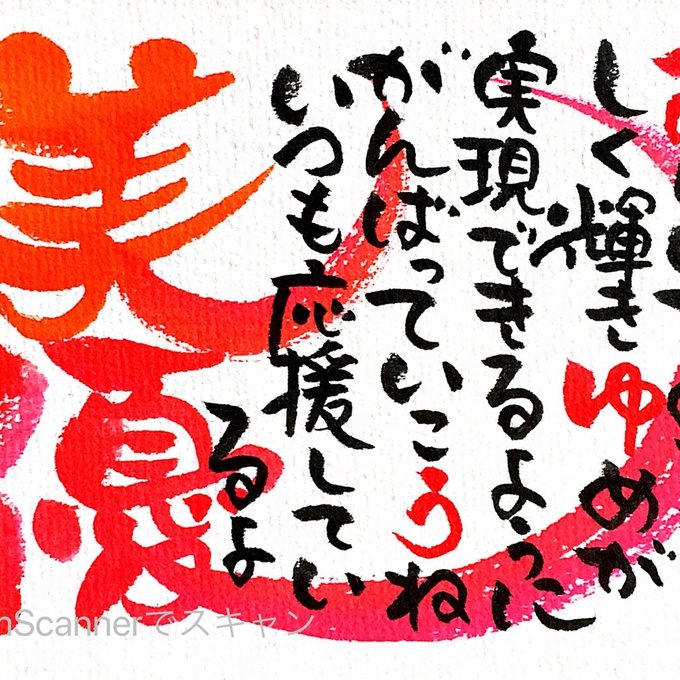 しく輝きゆめが
実現できるように
がんばっていこうね
いつも応援してい
るよ
美優
nScannerでスキャン